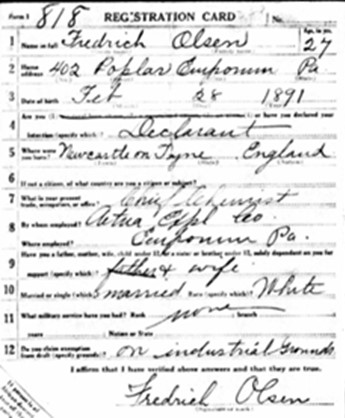 Form 1 818 REGISTRATION CARD No.
1 Name in full Fredrich Olsen Age, in yrs. 27
2 Home address 402 Poplar Emporium Pa
3 Date of birth Feb 28 1891
4 Are you or have you declared your intention (specify which)? Declarant
5 Where were you born? Newcastle on Tyne England
6 If not a citizen, of what country are you a citizen or subject?
7 What is your present trade, occupation, or office? Chemist
8 By whom employed? Aetna Expl Co.
Where employed? Emporium Pa.
9 Have you a father, mother, wife, child under 12, or a sister or brother under 12, solely dependent on you for
support (specify which)? & wife
10 Married or single (which)? married Race (specify which)? White
11 What military service have you had? Rank none branch
years Nation or State
12 Do you claim exemption from draft (specify grounds)? on industrial Grounds
I affirm that I have verified above answers and that they are true.
Fredrich Olsen